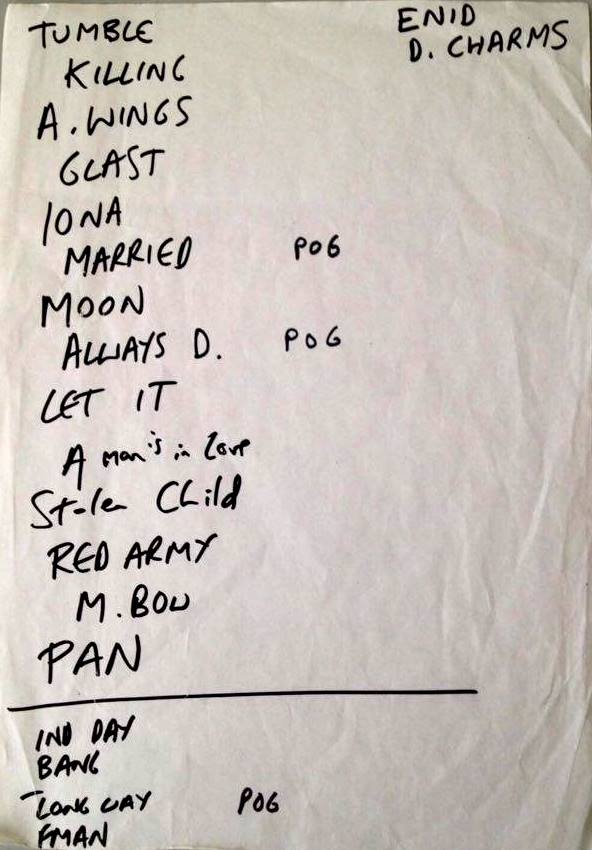 TUMBLE
KILLING
A. WINGS
GLAST
IONA
MARRIED POG
MOON
ALWAYS D. POG
LET IT
A man's in love
Stolen Child
RED ARMY
M. BOW
PAN
IND DAY
BANG
LONG WAY POG
FMAN
ENID
D. CHARMS